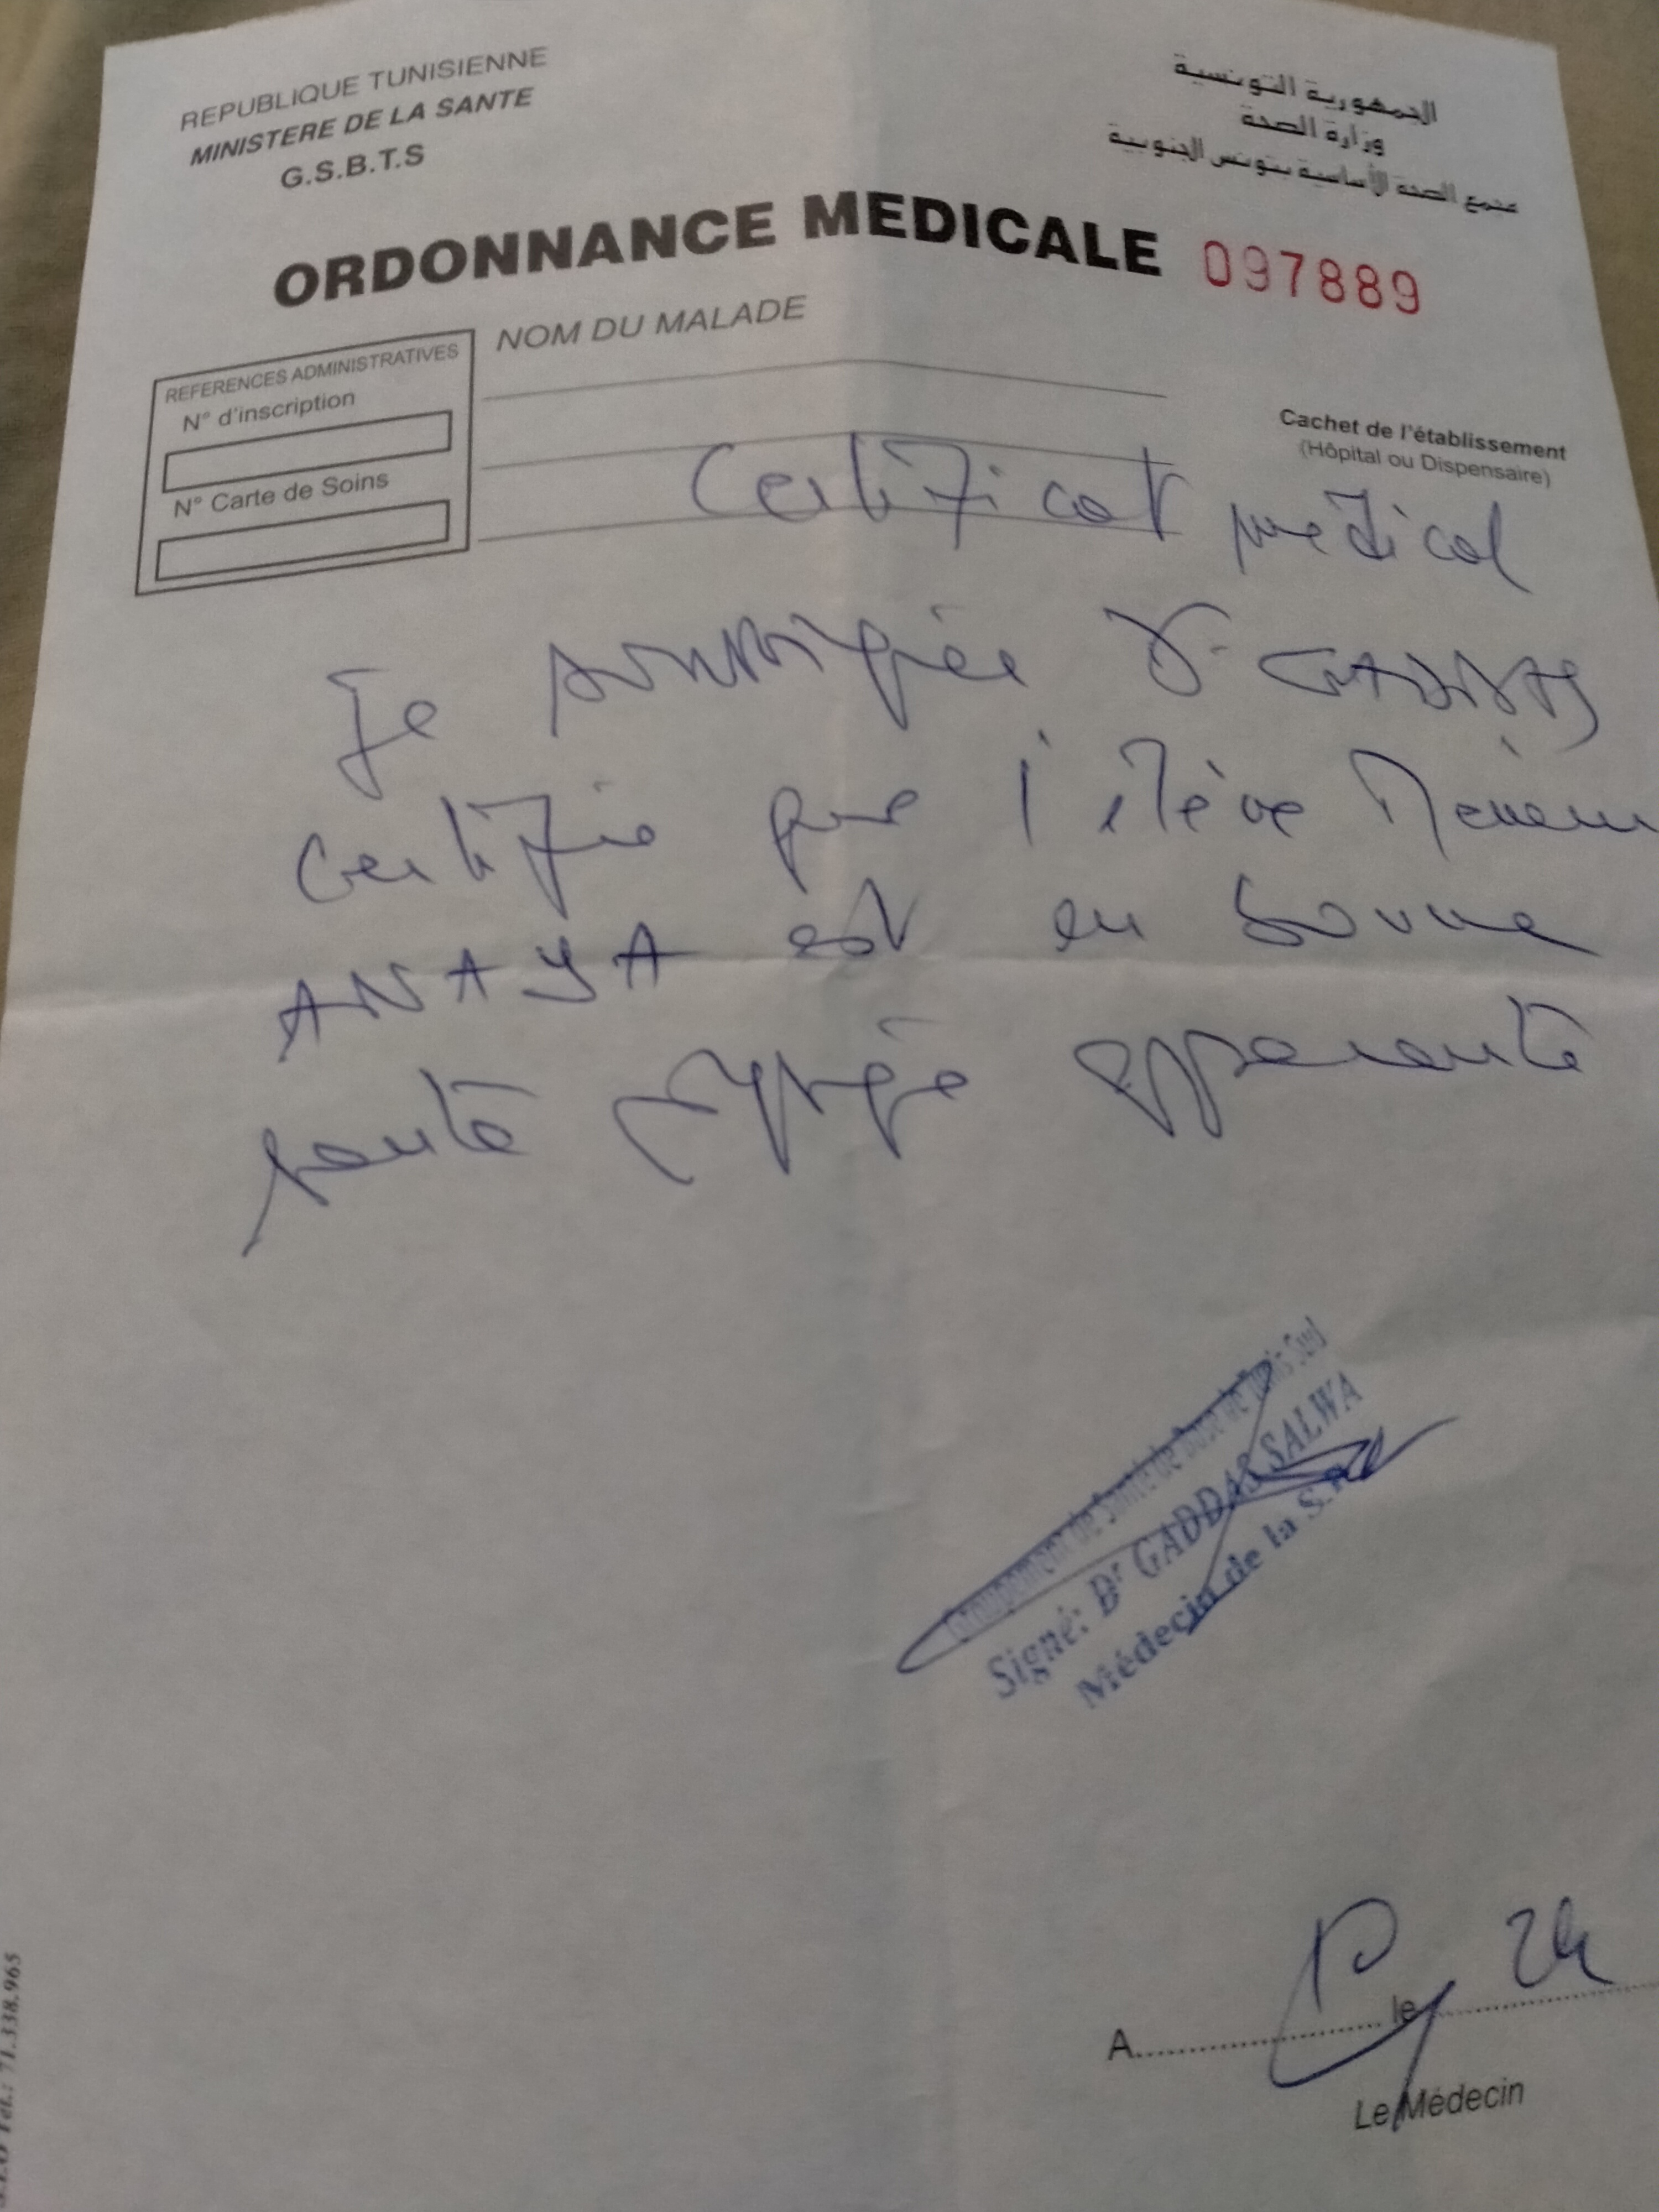 REPUBLIQUE TUNISIENNE
MINISTERE DE LA SANTE
G.S.B.T.S
الجمهورية التونسية
وزارة الصحة
مجمع الصحة الأساسية بتونس الجنوبية
ORDONNANCE MEDICALE 097889
REFERENCES ADMINISTRATIVES
N° d'inscription
N° Carte de Soins
NOM DU MALADE
Cachet de l'établissement
(Hôpital ou Dispensaire)
Certificat médical
Je soussignée Dr GADDAS
certifie que l'élève
ANAYA est en bonne
santé physique apparente
Groupement de Santé de Base de Tunis Sud
Signé: Dr GADDAS SALWA
Médecin de la S.P
A.......... le 24
Le Médecin
Tél.: 71.338.965